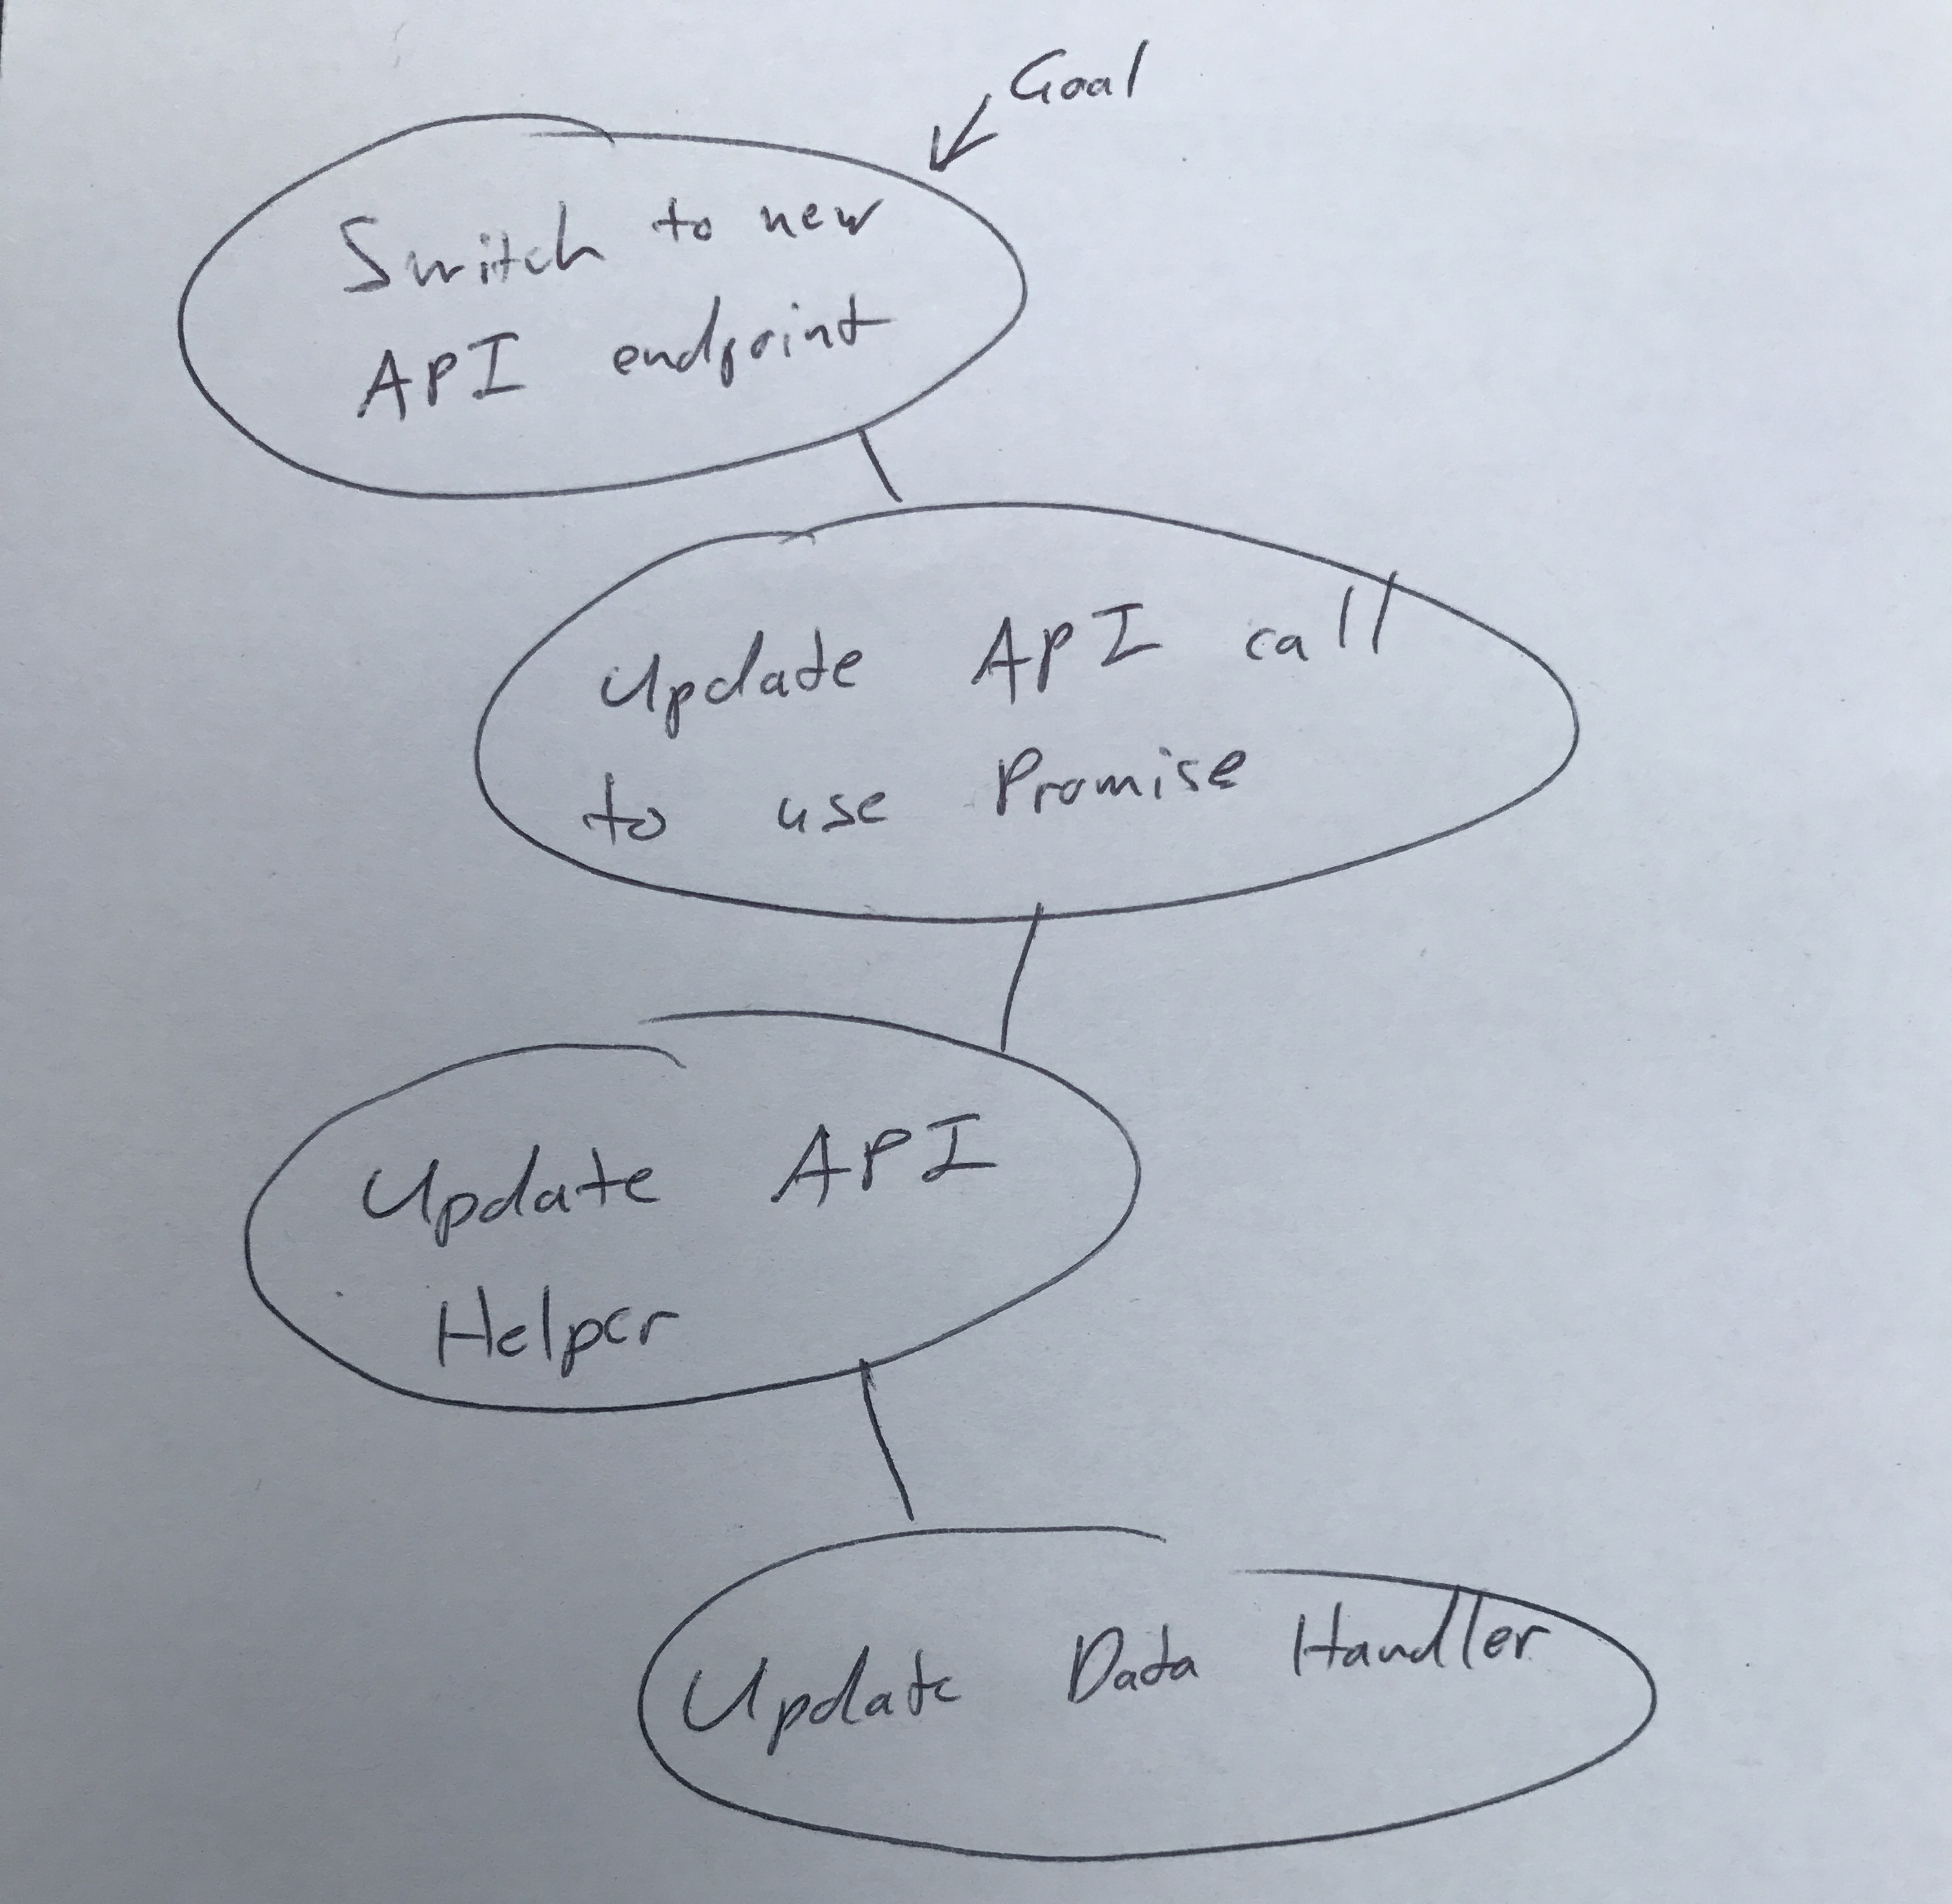 Goal
Switch to new
API endpoint
Update API call
to use Promise
Update API
Helper
Update Data Handler